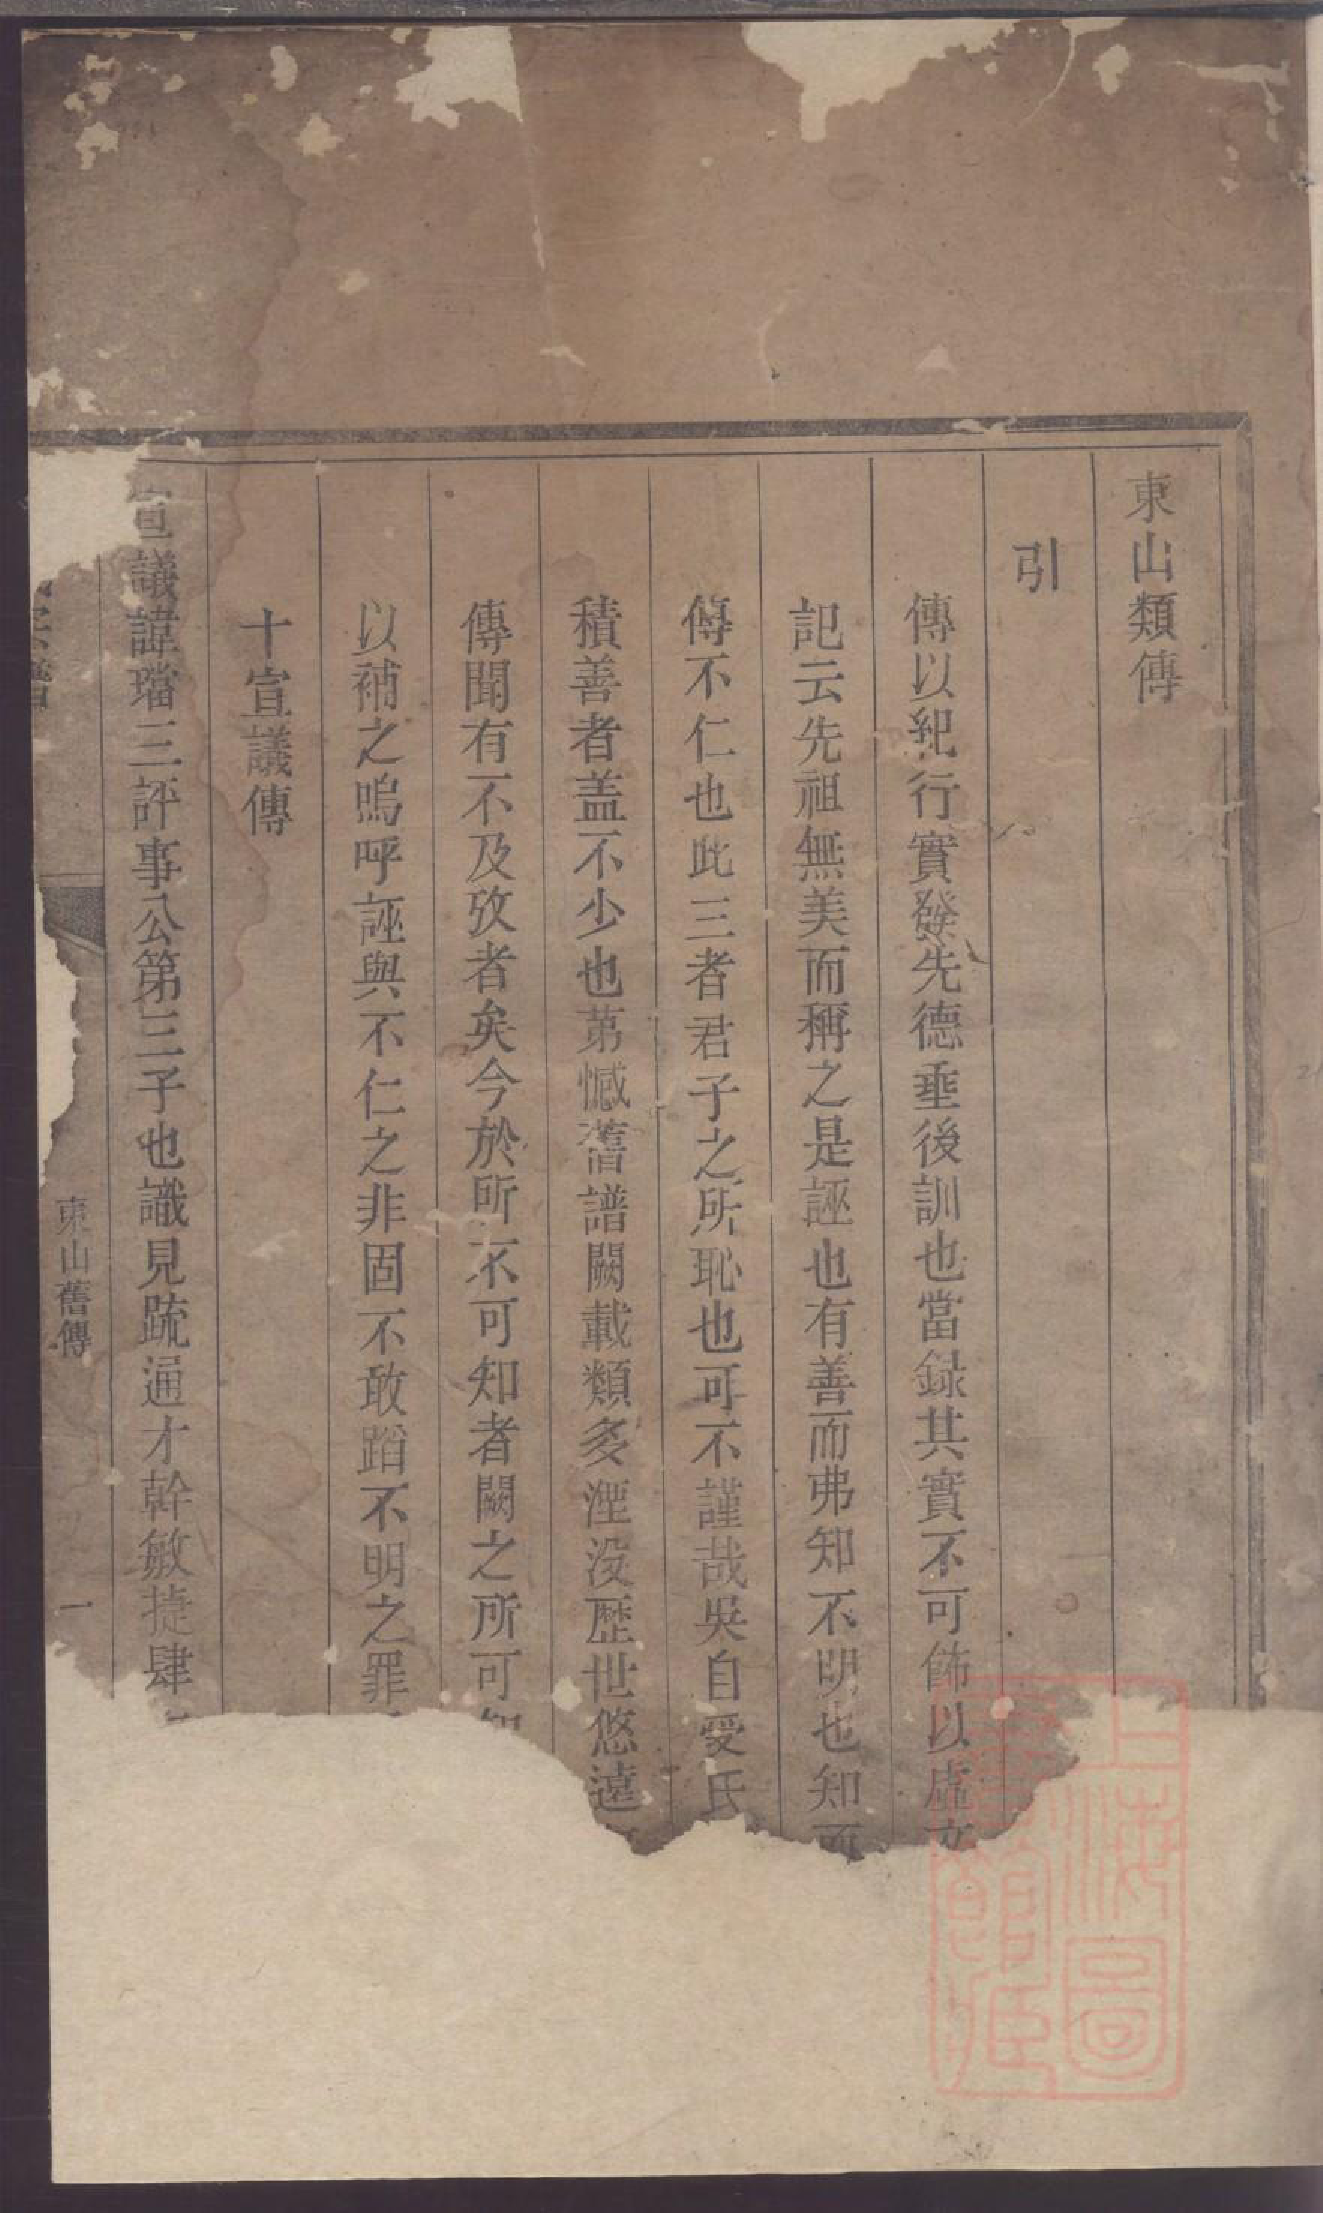 東山類傳
引
傳以紀行實發先德垂後訓也當録其實不可飾以虛文
記云先祖無美而稱之是誣也有善而弗知不明也知而
傳不仁也此三者君子之所恥也可不謹哉吳自受氏
積善者盖不少也苐憾舊譜闕載類多湮没歷世悠遠
傳聞有不及攷者矣今於所不可知者闕之所可知
以補之嗚呼誣與不仁之非固不敢蹈不明之罪
十宣議傳
宣議諱璫三評事公第三子也識見疏通才幹敏捷肆
東山舊傳 一
上海圖書館藏